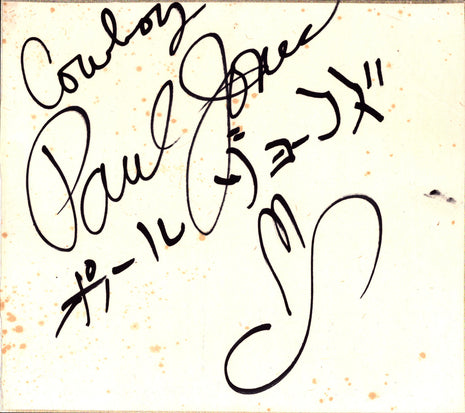 Cowboy
Paul Jones
ポール ジョーンズ